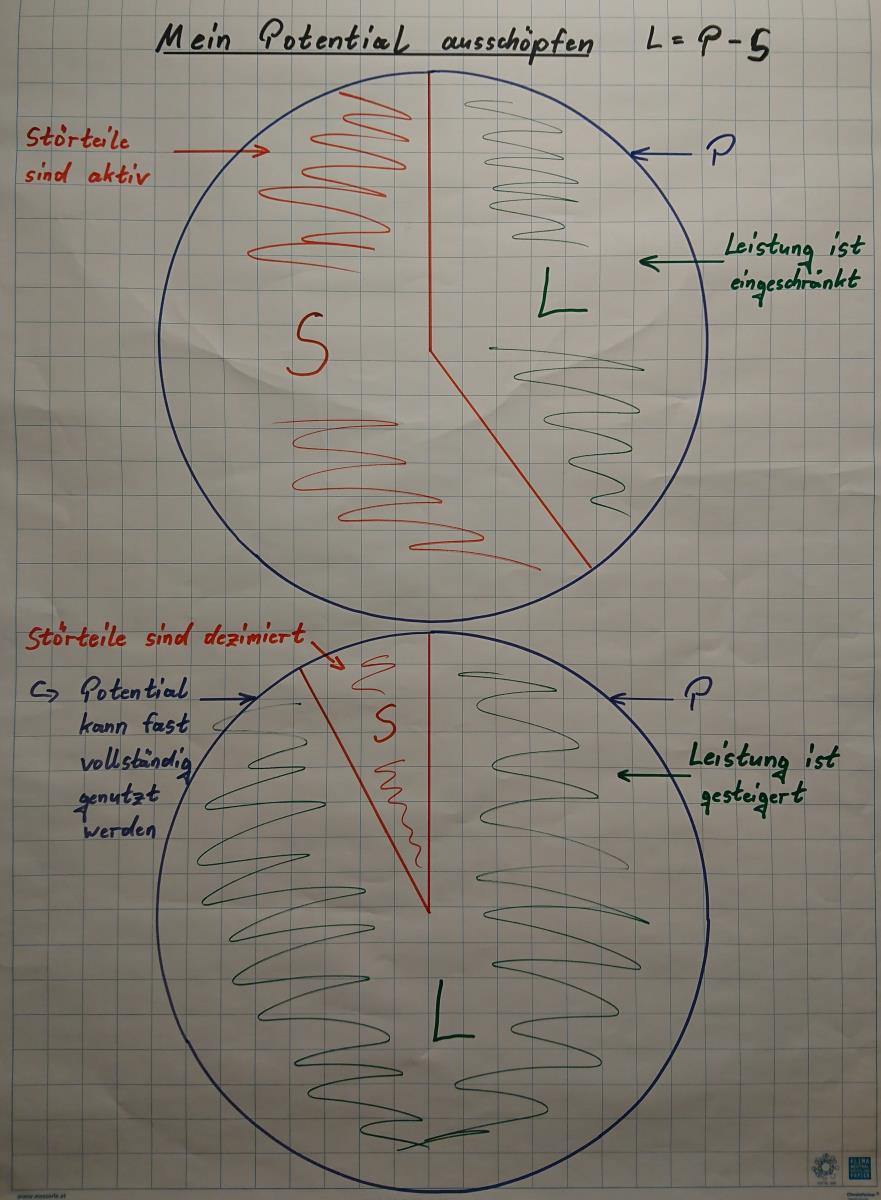 Mein Potential ausschöpfen L = P - S
Störteile
sind aktiv
P
Leistung ist
eingeschränkt
L
S
Störteile sind dezimiert
↪ Potential
kann fast
vollständig
genutzt
werden
P
S
Leistung ist
gesteigert
L
KLIMA